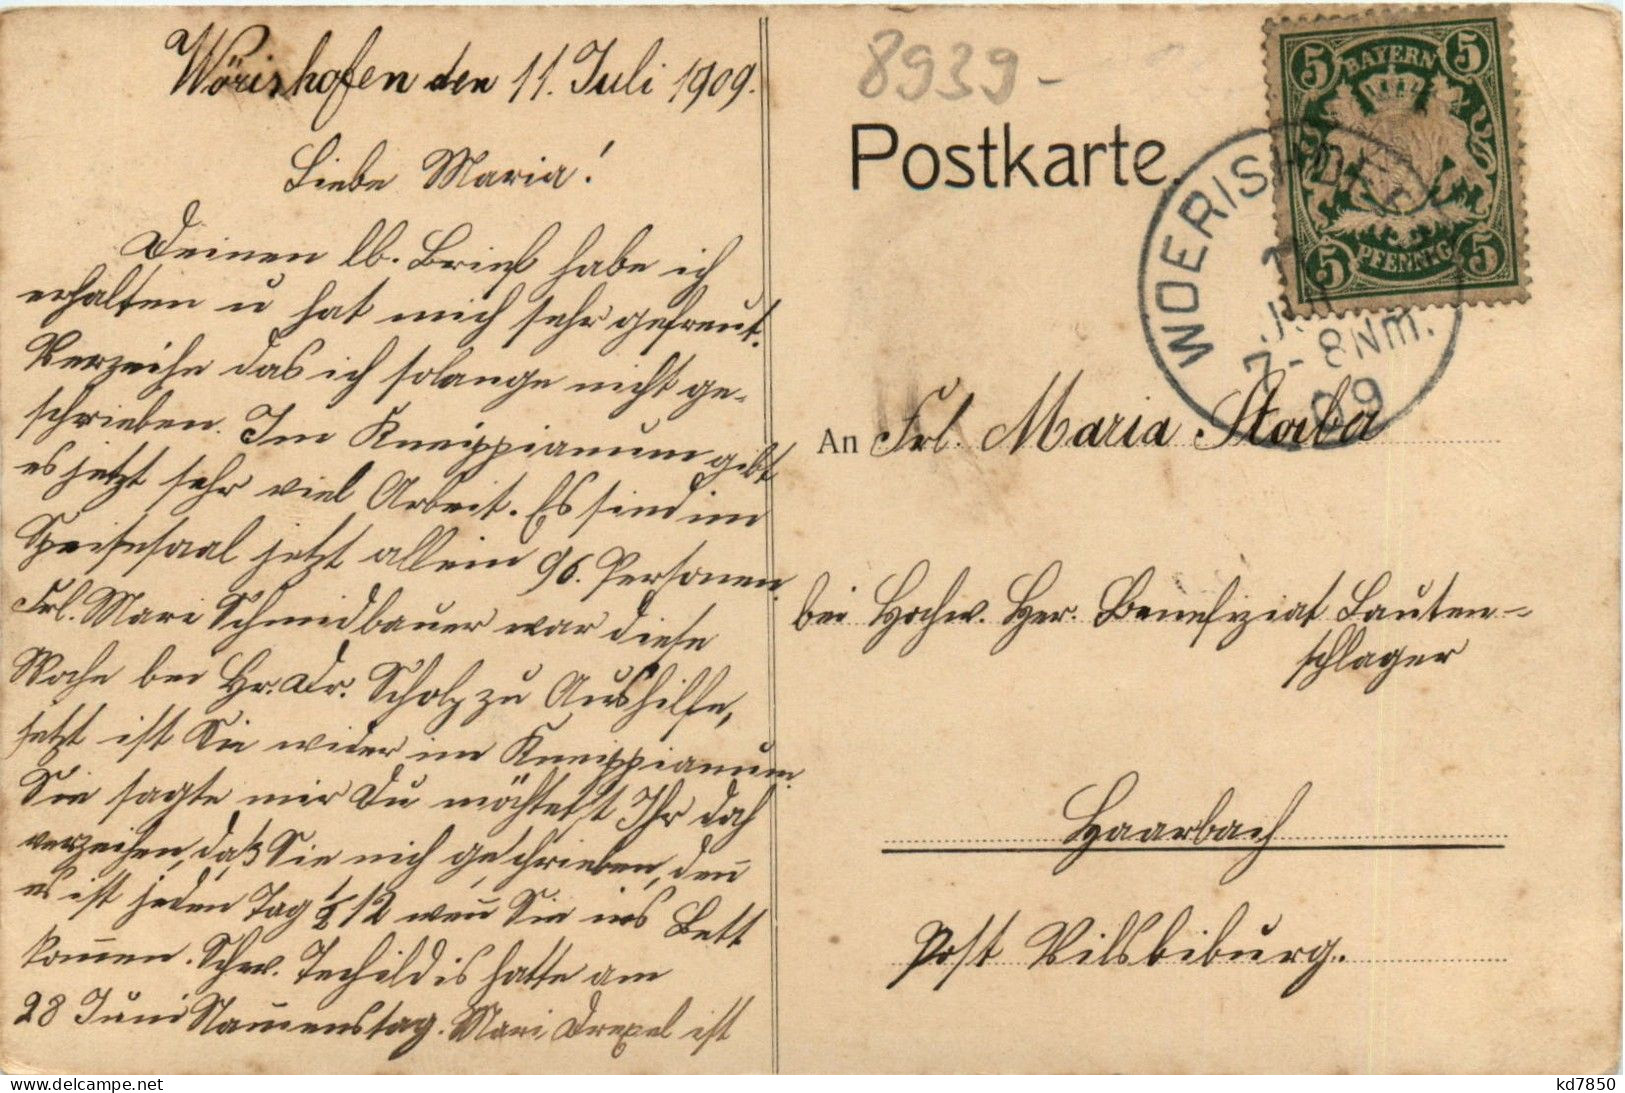 Wörishofen den 11. Juli 1909.
Liebe Maria!
Deinen lb. Brief habe ich
erhalten u hat mich sehr gefreut.
Verzeihe das ich solange nicht ge-
schrieben. Im Kneippianum gibt
es jetzt sehr viel Arbeit. Es sind im
Speisesaal jetzt allein 96. Personen.
Frl. Mari Schmidbauer war diese
Woche bei Hr. Dr. Scholz zu Aushilfe,
jetzt ist Sie wider im Kneippianum.
Sie sagte mir Du möchtest Ihr doch
verzeihen, daß Sie nich geschrieben, den̄
es ist jeden Tag ½ 12 wen̄ Sie ins Bett
kom̄en. Schw. hatte am
28 Juni Nam̄enstag. Mari Drexel ist
8939-
Postkarte.
BAYERN
5 5
5 5
PFENNIG
WOERISHOFEN
JUL
7-8 Nm.
09
An Frl. Maria Stoiber
bei Hochw. Her. Benefiziat Lauten-
schlager
Haarbach
Post Vilsbiburg.
kd7850